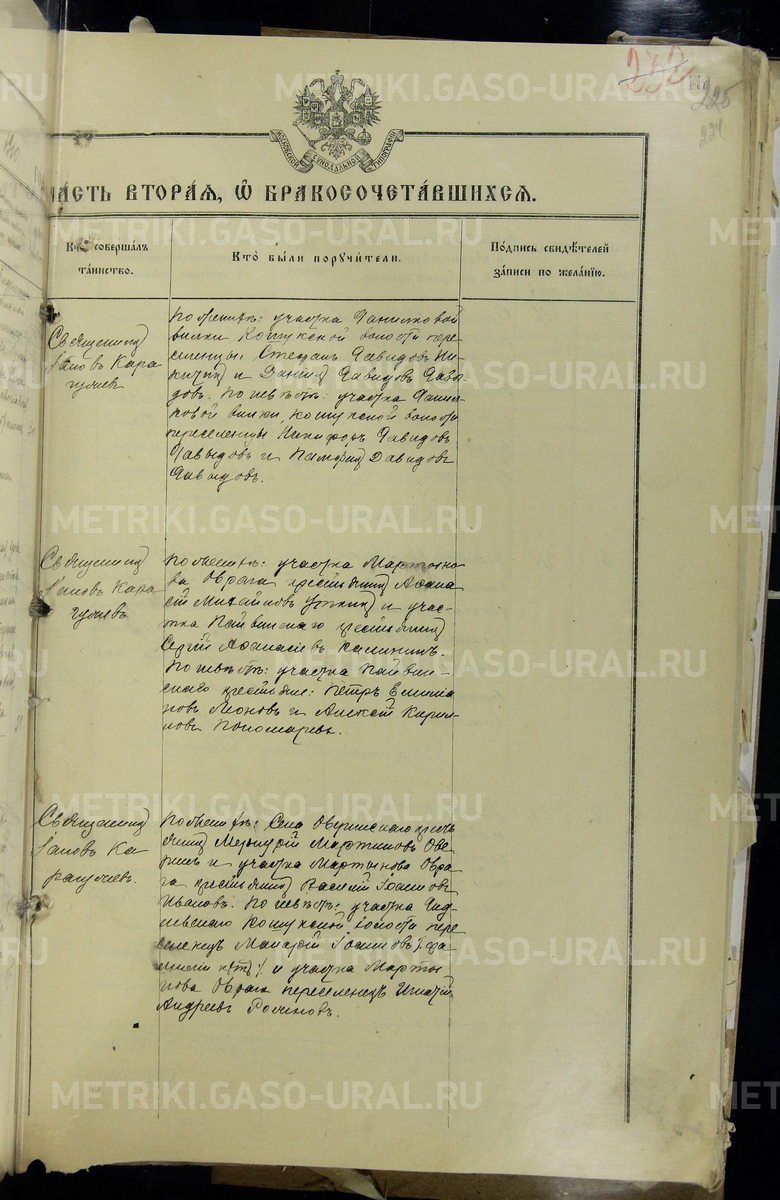 METRIKI.GASO-URAL.RU
232
226
224
МОСКОВСКОЙ СѴНОДАЛЬНОЙ ТИПОГРАФІИ
ЧА́СТЬ ВТОРА́Я, Ѽ БРАКОСОЧЕТА́ВШИХСЯ.
Кто̀ соверша́лъ
та́инство.
Кто̀ бы́ли порꙋчи́тели.
По́дпись свидѣ́телей
за́писи по жела́нїю.
Священникъ
Іаковъ Кара
гуляевъ
По женихѣ: участка
вилки Кошукской волости пере
селенцы: Стефанъ Давидовъ Ни
и Даніилъ Давидовъ Давы
довъ. По невѣстѣ: участка
ковой вилки, Кошукской волости
переселенцы Никифоръ Давидовъ
Давыдовъ и Памфилъ Давидовъ
Давыдовъ.
Священникъ
Іаковъ Кара
гуляевъ
По женихѣ: участка Мартыно
ва Оврага крестьянинъ Афана
сій Михайловъ и учас
тка крестьянинъ
Сергій Афанасіевъ Калининъ.
По невѣстѣ: участка
скаго крестьяне: Петръ
новъ Леоновъ и Алексѣй Кирил
ловъ Пономаревы.
Священникъ
Іаковъ Ка
рагуляевъ.
По женихѣ: Села Оверинскаго кресть
янинъ Меркурій Мартиновъ Ове
ринъ и участка Мартынова Овра
га крестьянинъ Василій Іоанновъ
Ивановъ. По невѣстѣ: участка
Кошукской волости пере
селенецъ Макарій Іоанновъ /: фа
миліи нѣтъ :/ и участка Марты
нова Оврага переселенецъ Игнатій
Андреевъ